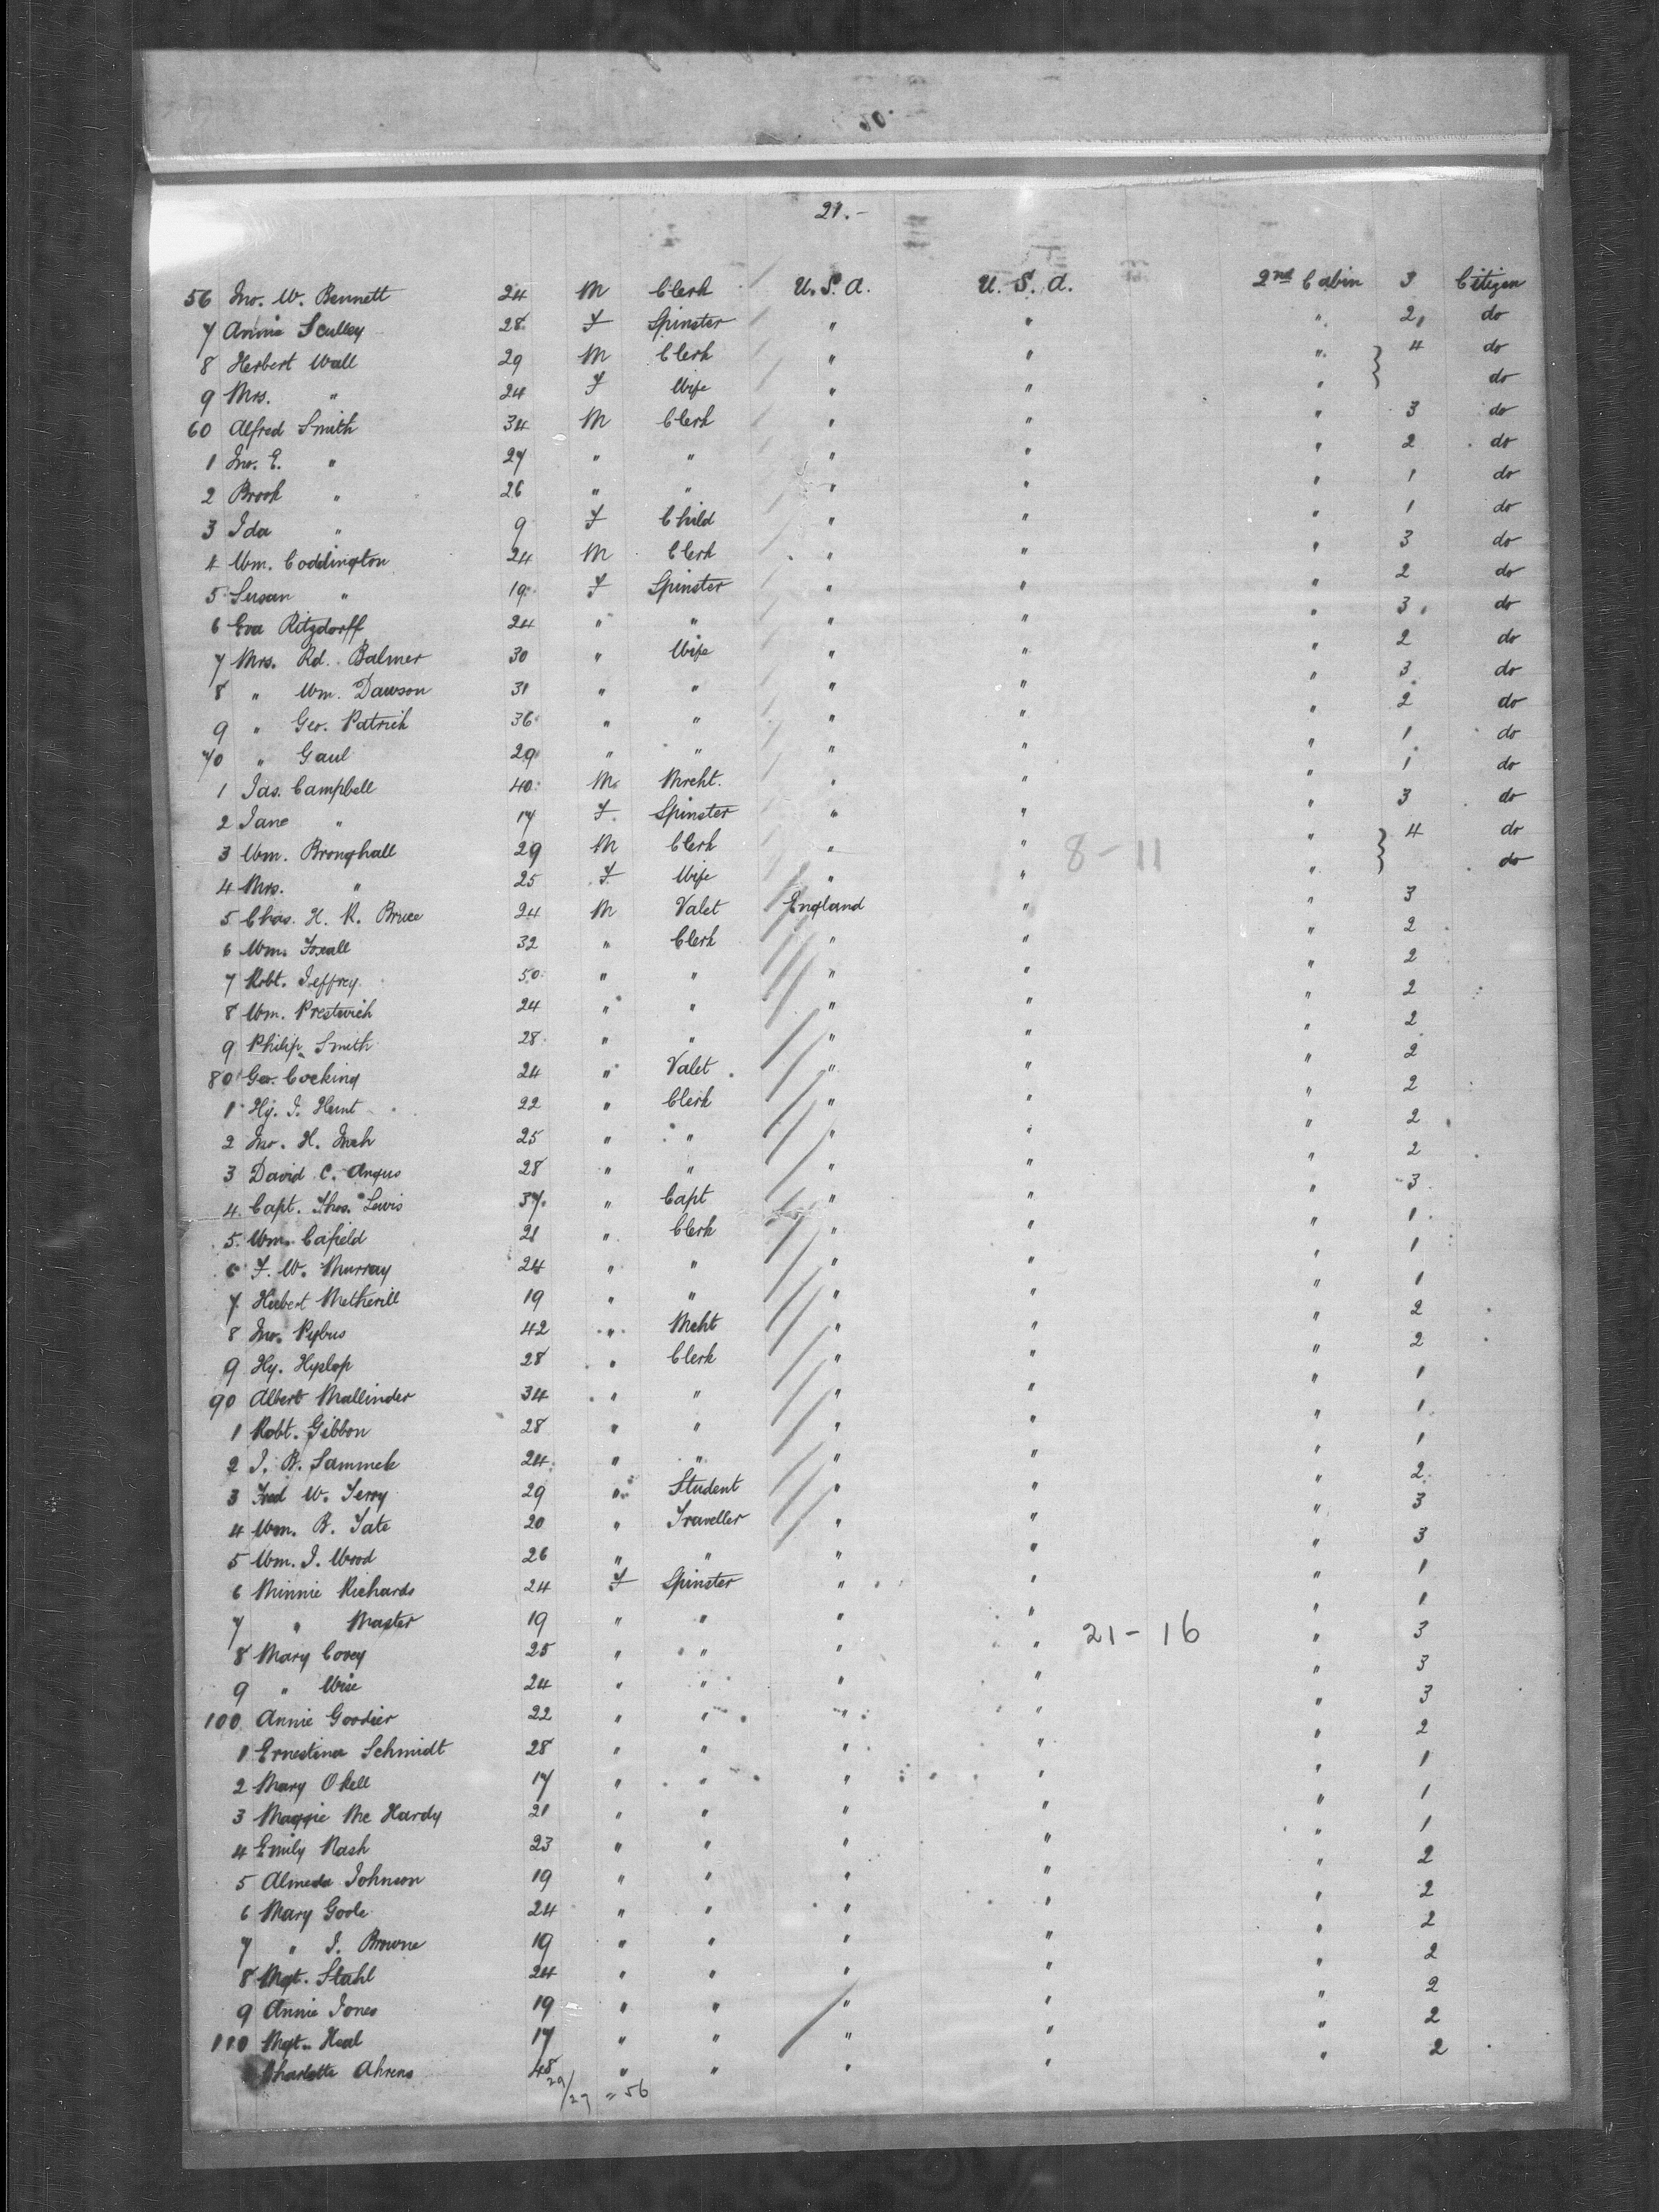 21.-
56 Jno. W. Bennett 24 M Clerk U.S.A. U.S.A. 2nd Cabin 3 Citizen
7 Annie Sculley 28 F Spinster " " " 2 do
8 Herbert Wall 29 M Clerk " " " } 4 do
9 Mrs. " 24 F Wife " " " do
60 Alfred Smith 34 M Clerk " " " 3 do
1 Jno. E. " 27 " " " " " 2 do
2 Brook " 26 " " " " " 1 do
3 Ida " 9 F Child " " " 1 do
4 Wm. Coddington 24 M Clerk " " " 3 do
5 Susan " 19 F Spinster " " " 2 do
6 Eva Ritzdorff 24 " " " " " 3 do
7 Mrs. Rd. Balmer 30 " Wife " " " 2 do
8 " Wm. Dawson 31 " " " " " 3 do
9 " Geo. Patrick 36 " " " " " 2 do
70 " Gaul 29 " " " " " 1 do
1 Jas. Campbell 40 M. Mrcht. " " " 1 do
2 Jane " 17 F. Spinster " " " 3 do
3 Wm. Bronghall 29 M Clerk " " 8-11 " } 4 do
4 Mrs. " 25 F. Wife " " " do
5 Chas. H. R. Bruce 24 M Valet England " " 3
6 Wm. Foxall 32 " Clerk " " " 2
7 Robt. Jeffrey 50 " " " " " 2
8 Wm. Prestwich 24 " " " " " 2
9 Philip Smith 28 " " " " " 2
80 Geo. Cocking 24 " Valet " " " 2
1 Hy. J. Hunt 22 " Clerk " " " 2
2 Jno. H. Inch 25 " " " " " 2
3 David C. Angus 28 " " " " " 2
4 Capt. Thos. Lewis 37 " Capt " " " 3
5 Wm. Cafield 21 " Clerk " " " 1
6 F. W. Murray 24 " " " " " 1
7 Hubert Metherill 19 " " " " " 1
8 Jno. Pybus 42 " Mcht " " " 2
9 Hy. Hyslop 28 " Clerk " " " 2
90 Albert Mallinder 34 " " " " " 1
1 Robt. Gibbon 28 " " " " " 1
2 J. B. 24 " " " " " 1
3 Fred W. Terry 29 " Student " " " 2
4 Wm. B. Tate 20 " Traveller " " " 3
5 Wm. J. Wood 26 " " " " " 3
6 Minnie Richards 24 F Spinster " " " 1
7 " Master 19 " " " " " 1
8 Mary Covey 25 " " " " 21-16 " 3
9 " Wise 24 " " " " " 3
100 Annie Goodier 22 " " " " " 3
1 Ernestina Schmidt 28 " " " " " 2
2 Mary Okell 17 " " " " " 1
3 Maggie Mc Hardy 21 " " " " " 1
4 Emily Nash 23 " " " " " 1
5 Almeda Johnson 19 " " " " " 2
6 Mary Goole 24 " " " " " 2
7 " J. Browne 19 " " " " " 2
8 Mgt. Stahl 24 " " " " " 2
9 Annie Jones 19 " " " " " 2
110 Mgt. Heal 17 " " " " " 2
Charlotte Ahrens 48 " " " " " 2
29/27 = 56